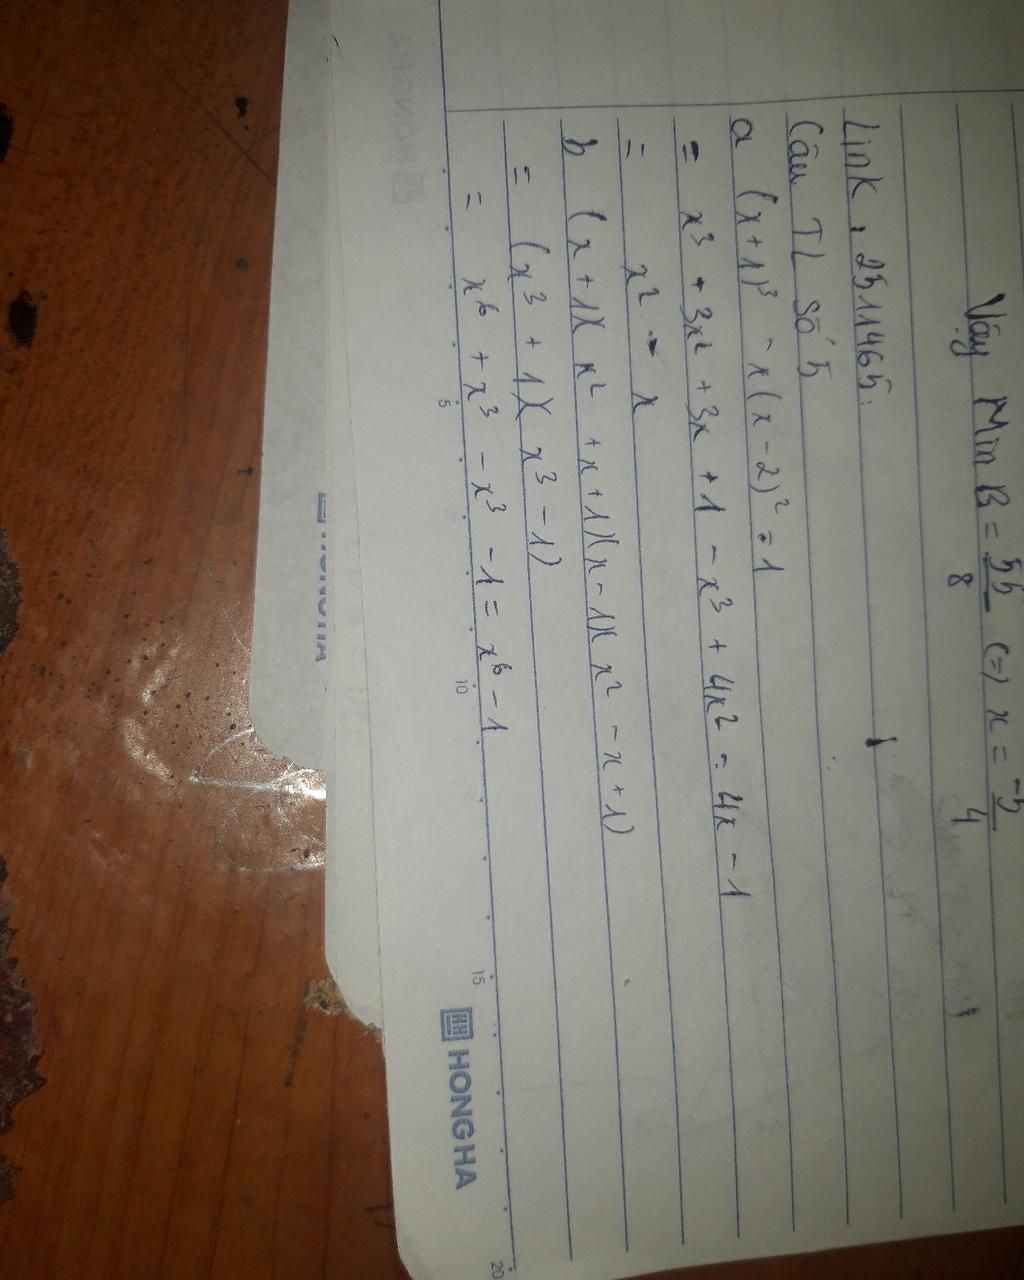 Vậy Min B = 55/8 (=) x = -5/4
Link, 2511465.
Câu TL Số 5
a (x+1)³ - x(x-2)² - 1
= x³ + 3x² + 3x + 1 - x³ + 4x² - 4x - 1
= x² - x
b (x+1)(x² + x + 1)(x - 1)(x² - x + 1)
= (x³ + 1)(x³ - 1)
= x⁶ + x³ - x³ - 1 = x⁶ - 1
5
10
15
20
HONG HA
HONG HA